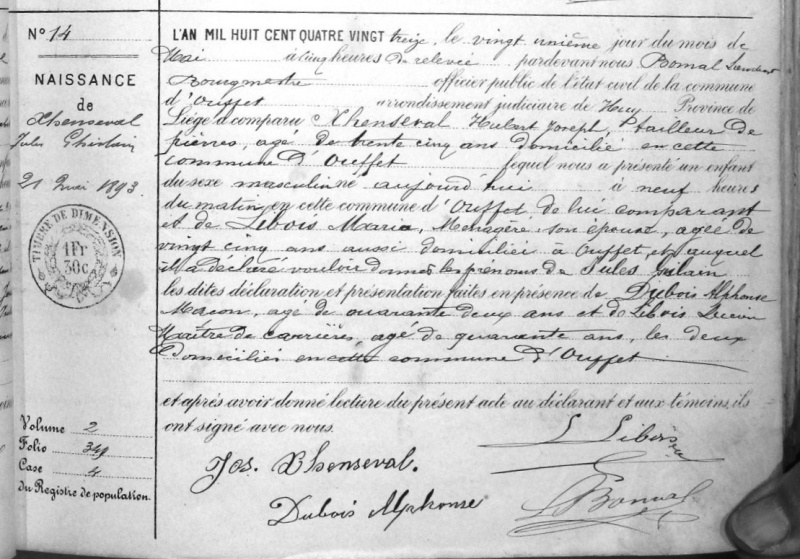 N° 14
NAISSANCE
de
Xhenseval
Jules Ghislain
21 mai 1893.
TIMBRE DE DIMENSION
1 Fr
30c
Volume 2
Folio 349
Case 4
du Registre de population.
L'AN MIL HUIT CENT QUATRE VINGT treize, le vingt unième jour du mois de
Mai à cinq heures de relevée pardevant nous Bonal Lambert
Bourgmestre officier public de l'état civil de la commune
d'Ouffet arrondissement judiciaire de Huy Province de
Liège a comparu Xhenseval Hubert Joseph, tailleur de
pierres, agé de trente cinq ans domicilié en cette
commune d'Ouffet lequel nous a présenté un enfant
du sexe masculin né aujourd'hui à neuf heures
du matin, en cette commune d'Ouffet, de lui comparant
et de Lebois Maria, Ménagère son épouse, agée de
vingt cinq ans aussi domiciliée à Ouffet, et auquel
il a déclaré vouloir donner les prénoms de Jules
les dites déclaration et présentation faites en présence de Dubois Alphonse
Maçon, agé de quarante deux ans et de Lebois Lucien
Maître de carrières, agé de quarante ans, les deux
Domiciliés en cette commune d'Ouffet
et après avoir donné lecture du présent acte au déclarant et aux témoins, ils
ont signé avec nous.
Jos. Xhenseval.
Dubois Alphonse